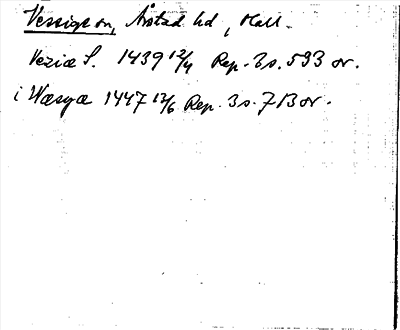 Vessige sn, Årstad hd, Hall.
Veziæ S. 1439 12/4 Rep. 3 s. 593 or.
i Wæsyæ 1447 12/6 Rep. 3 s. 713 or.